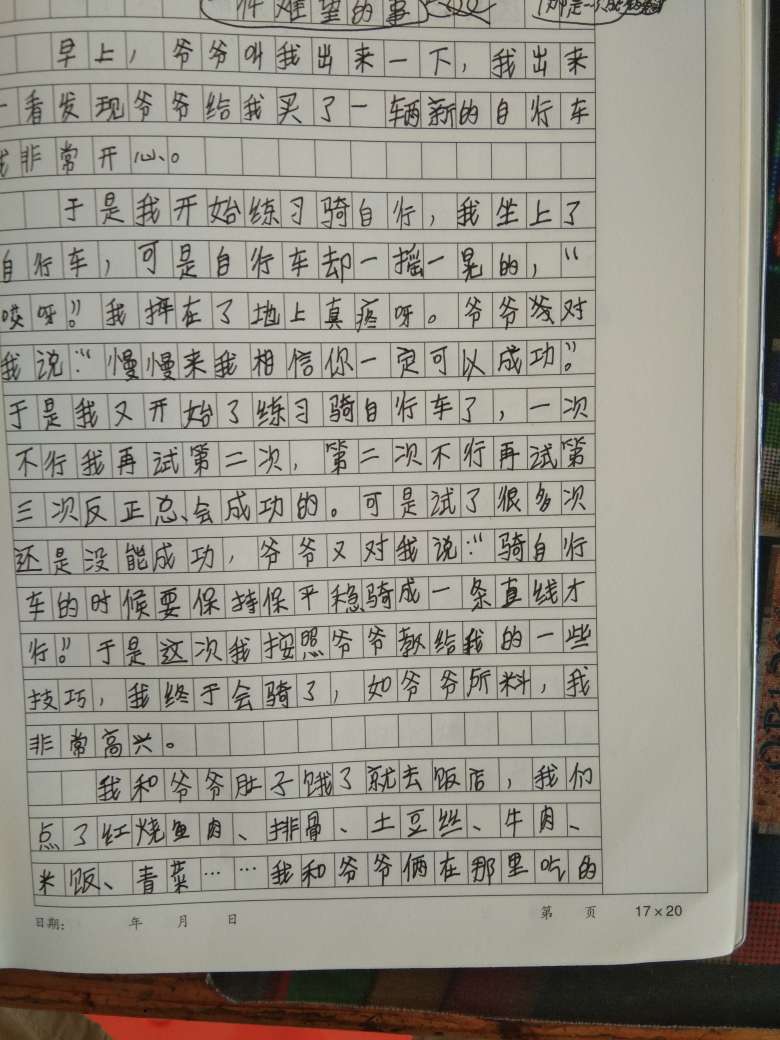 件难望的事
那是一次
早上，爷爷叫我出来一下，我出来
一看发现爷爷给我买了一辆新的自行车
我非常开心。
于是我开始练习骑自行，我坐上了
自行车，可是自行车却一摇一晃的，“
哎呀”！我摔在了地上真疼呀。爷爷对
我说：“慢慢来我相信你一定可以成功”。
于是我又开始了练习骑自行车了，一次
不行我再试第二次，第二次不行再试第
三次反正总会成功的。可是试了很多次
还是没能成功，爷爷又对我说：“骑自行
车的时候要保持保平稳骑成一条直线才
行”。于是这次我按照爷爷教给我的一些
技巧，我终于会骑了，如爷爷所料，我
非常高兴。
我和爷爷肚子饿了就去饭店，我们
点了红烧鱼肉、排骨、土豆丝、牛肉、
米饭、青菜……我和爷爷俩在那里吃的
日期： 年 月 日 第 页 17×20